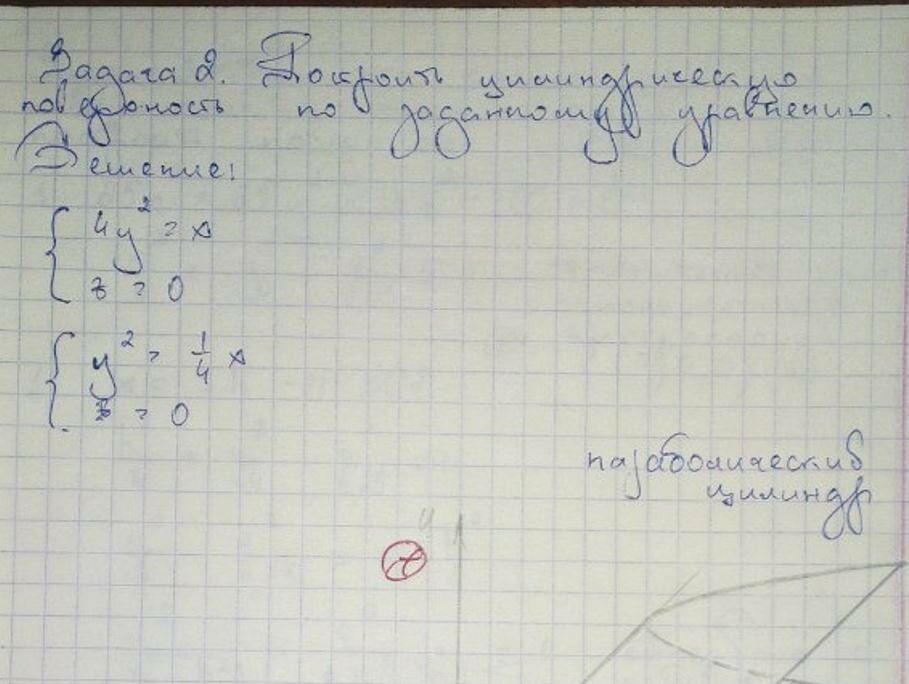 Задача 2. Построить цилиндрическую
поверхность по заданному уравнению.
Решение:
{ 4y² = x
z = 0
{ y² = 1/4 x
z = 0
параболический
цилиндр
y